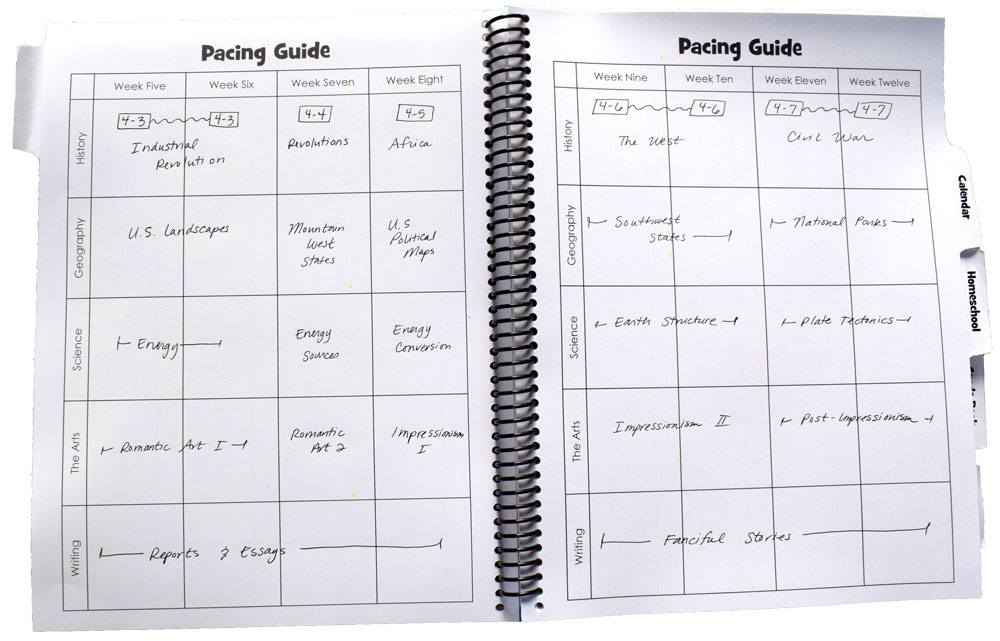 Pacing Guide
Week Five Week Six Week Seven Week Eight
History
4-3 4-3 4-4 4-5
Industrial
Revolution
Revolutions
Africa
Geography
U.S. Landscapes
Mountain
West
States
U.S.
Political
Maps
Science
Energy
Energy
Sources
Energy
Conversion
The Arts
Romantic Art I
Romantic
Art 2
Impressionism
I
Writing
Reports & Essays
Pacing Guide
Week Nine Week Ten Week Eleven Week Twelve
History
4-6 4-6 4-7 4-7
The West
Civil War
Geography
Southwest
States
National Parks
Science
Earth Structure
Plate Tectonics
The Arts
Impressionism II
Post-Impressionism
Writing
Fanciful Stories
Calendar
Homeschool